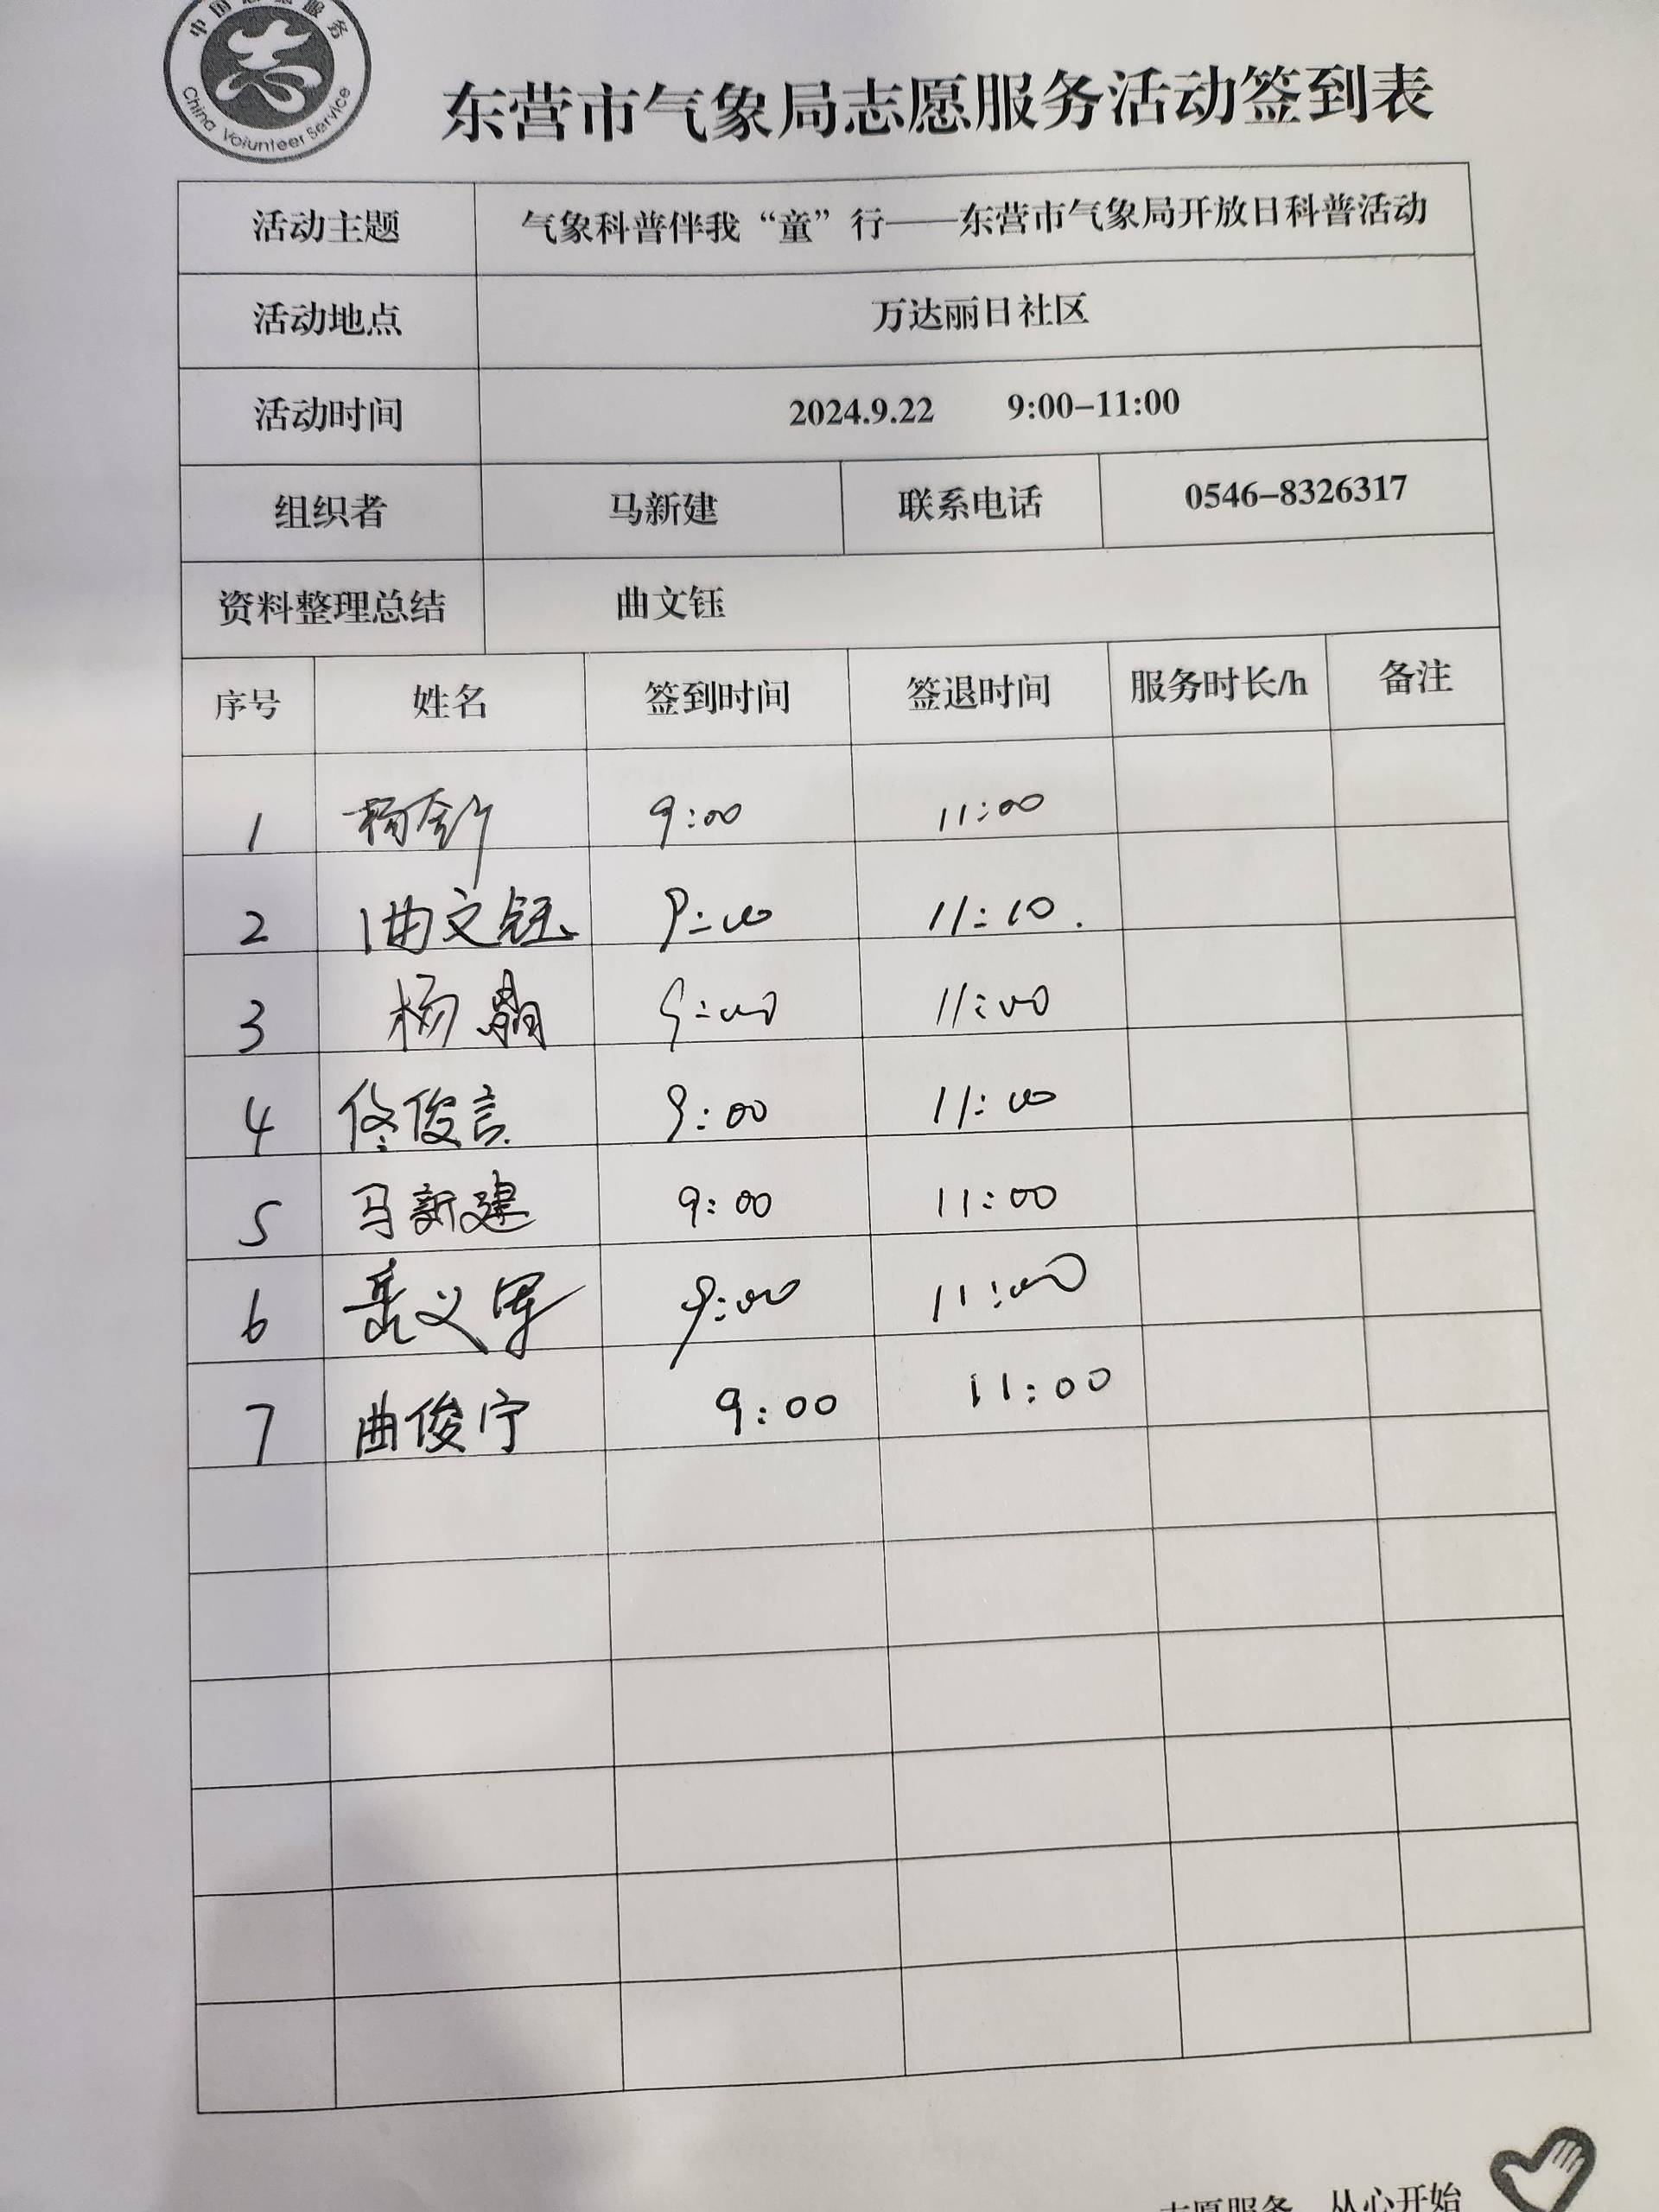 中国志愿服务
China Volunteer Service
东营市气象局志愿服务活动签到表
活动主题 气象科普伴我“童”行——东营市气象局开放日科普活动
活动地点 万达丽日社区
活动时间 2024.9.22 9:00-11:00
组织者 马新建 联系电话 0546-8326317
资料整理总结 曲文钰
序号 姓名 签到时间 签退时间 服务时长/h 备注
1 杨 9:00 11:00
2 曲文钰 9:00 11:10.
3 杨 9:00 11:00
4 佟俊言 9:00 11:00
5 马新建 9:00 11:00
6 岳义军 9:00 11:00
7 曲俊宁 9:00 11:00
志愿服务 从心开始